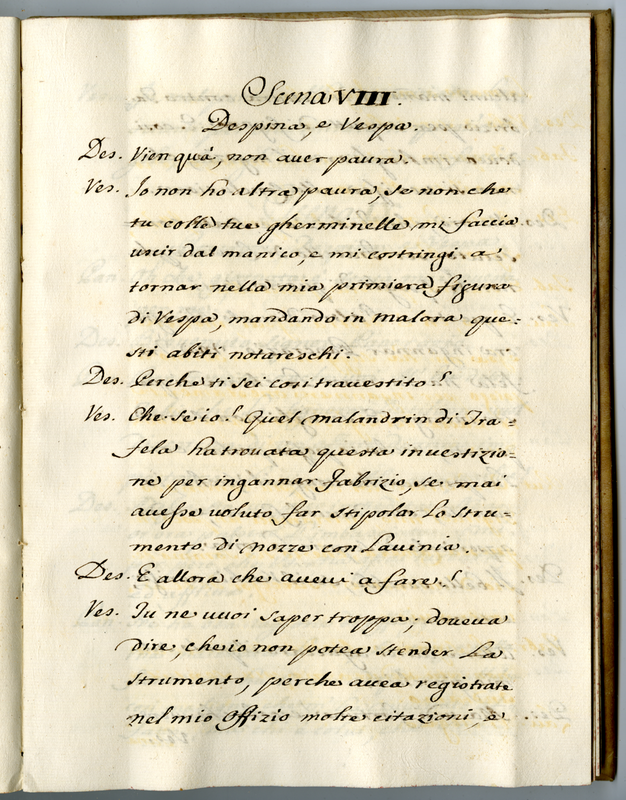 Scena VIII.
Despina, e Vespa.
Des. Vien quà, non aver paura.
Ves. Io non ho altra paura, se non che
tu colle tue gherminelle mi faccia
uscir dal manico, e mi costringi a
tornar nella mia primiera figura
di Vespa, mandando in malora que=
sti abiti notareschi.
Des. Perche ti sei così travestito?
Ves. Che so io! Quel malandrin di Tra=
fela ha trovata questa investizio=
ne per ingannar Fabrizio, se mai
avesse voluto far stipolar lo stru=
mento di nozze con Lavinia.
Des. E allora che avevi a fare?
Ves. Tu ne vuoi saper troppa; doveva
dire, che io non potea stender La
strumento, perche avea registrate
nel mio Offizio molte citazioni, e